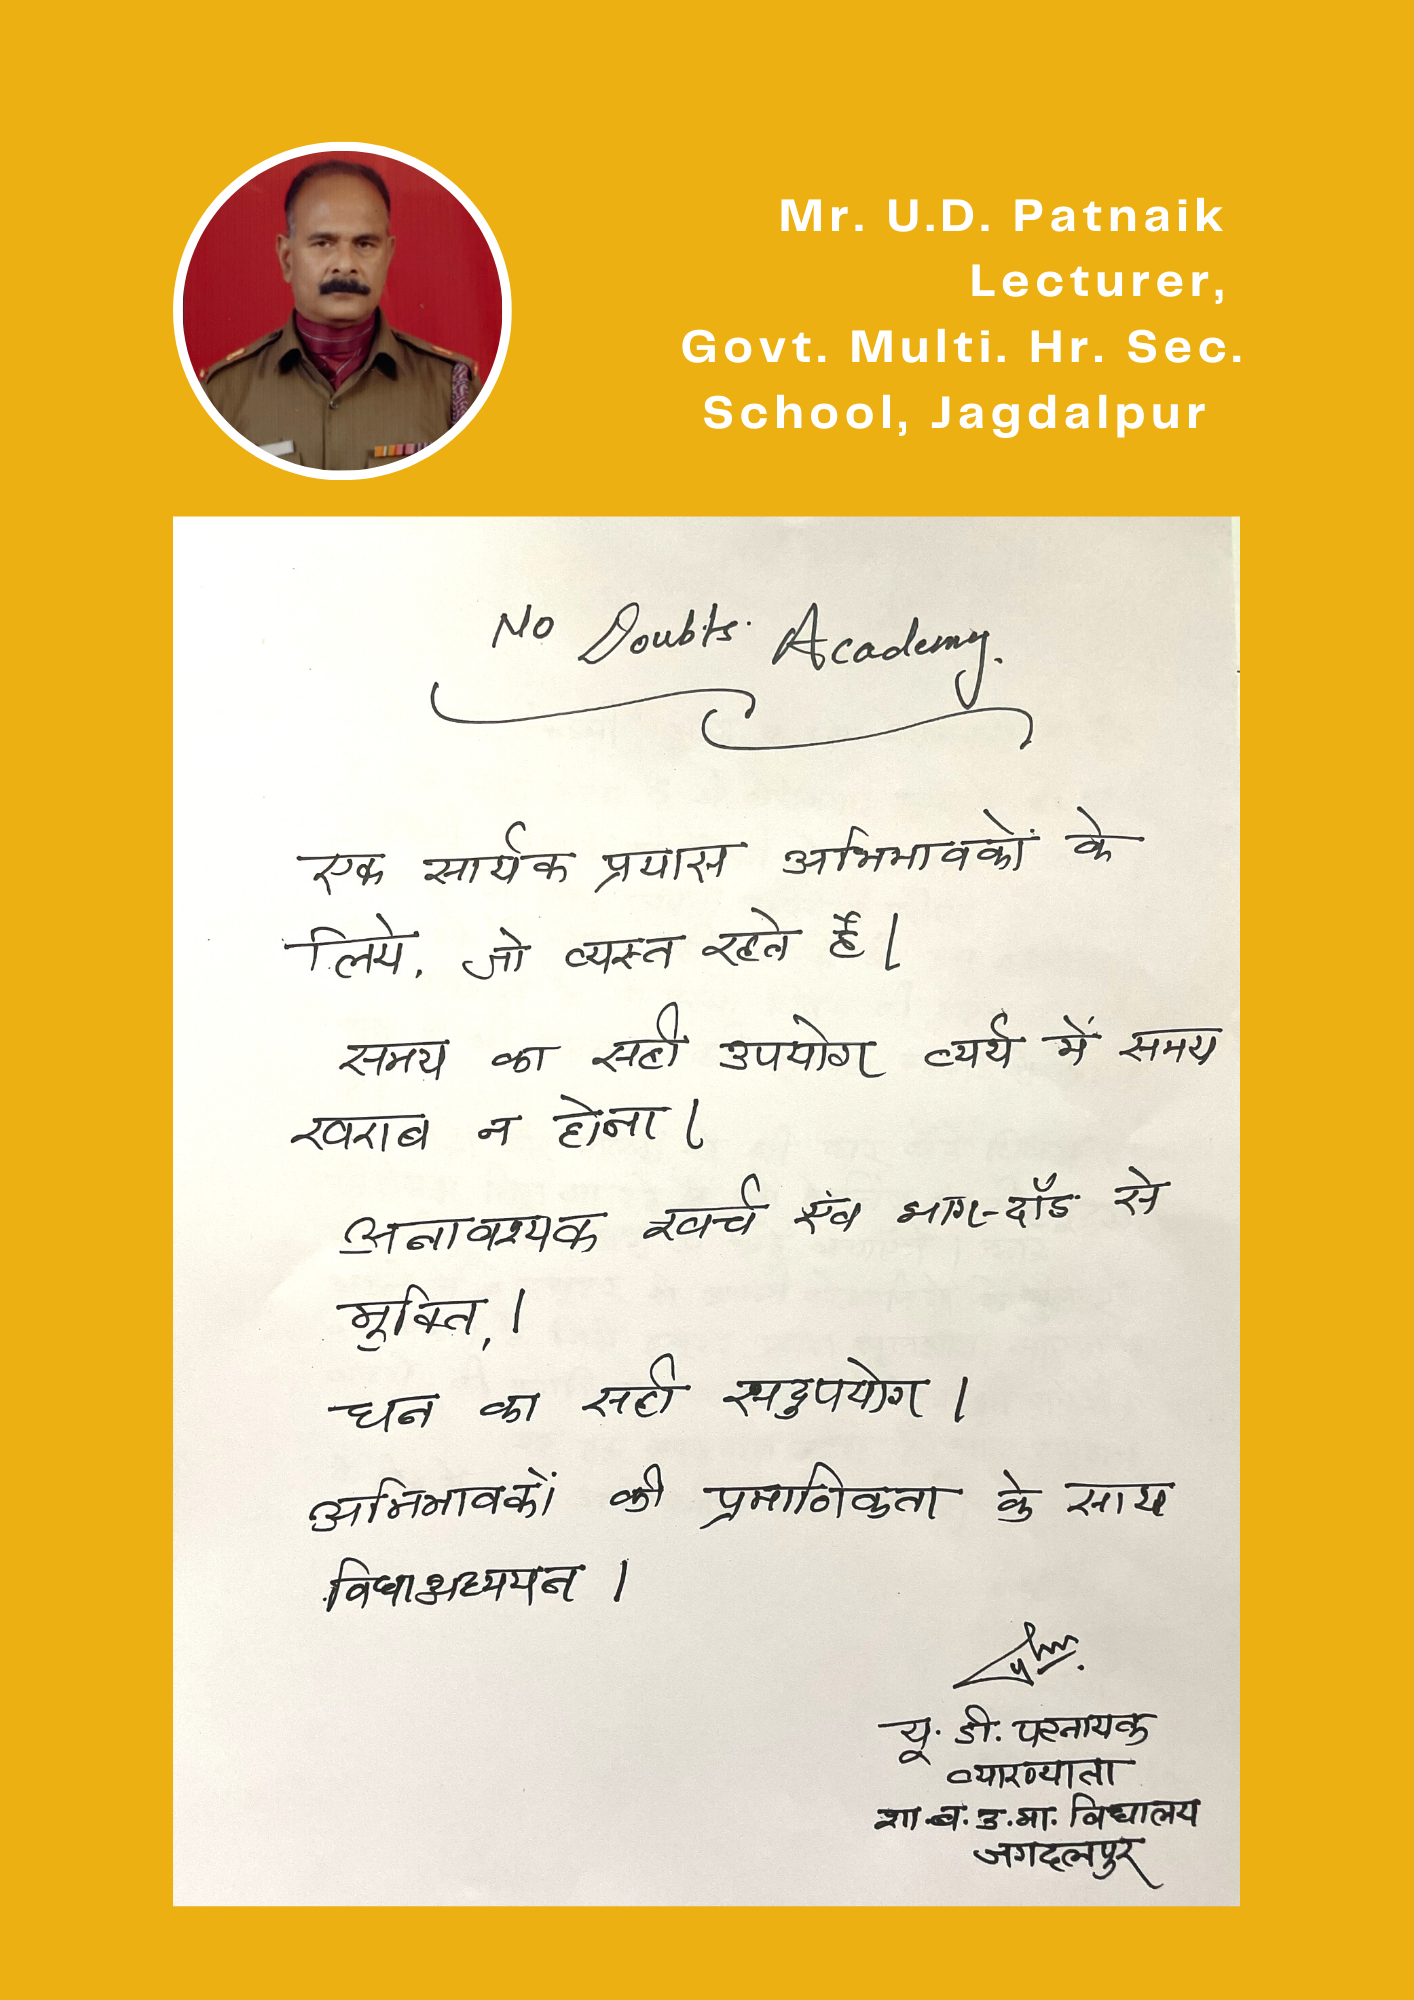 Mr. U.D. Patnaik
Lecturer,
Govt. Multi. Hr. Sec.
School, Jagdalpur
No Doubts Academy.
एक सार्थक प्रयास अभिभावकों के
लिये, जो व्यस्त रहते हैं।
समय का सही उपयोग व्यर्थ में समय
खराब न होना।
अनावश्यक खर्च एंव भाग-दौड से
मुक्ति,।
धन का सही सदुपयोग।
अभिभावकों की प्रमाणिकता के साथ
विधाअध्ययन।
यू. डी. पटनायक
व्याख्याता
शा.ब.उ.मा. विधालय
जगदलपुर